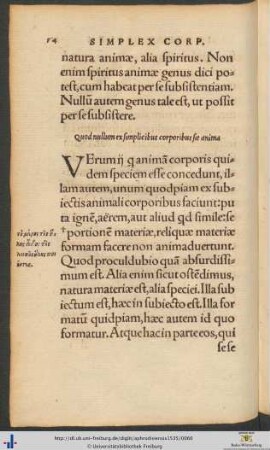 14 SIMPLEX CORP.
natura animæ, alia spiritus. Non
enim spiritus animæ genus dici po-
test, cum habeat per se subsistentiam.
Nullũ autem genus tale est, ut possit
per se subsistere.
Quod nullum ex simplicibus corporibus sit anima
VErum ij q animã corporis qui-
dem speciem esse concedunt, il-
lam autem, unum quodpiam ex sub-
iectis animali corporibus faciunt: pu-
ta ignẽ, aërem, aut aliud qd simile: se
†portionẽ materiæ, reliquæ materiæ
formam facere non animaduertunt.
Quod proculdubio quã absurdissi-
mum est. Alia enim sicut ostẽdimus,
natura materiæ est, alia speciei. Illa sub
iectum est, hæc in subiecto est. Illa for-
matũ quidpiam, hæc autem id quo
formatur. Atque hac in parte eos, qui
sese
http://dl.ub.uni-freiburg.de/diglit/aphrodisiensis1535/0066
© Universitätsbibliothek Freiburg
Baden-Württemberg